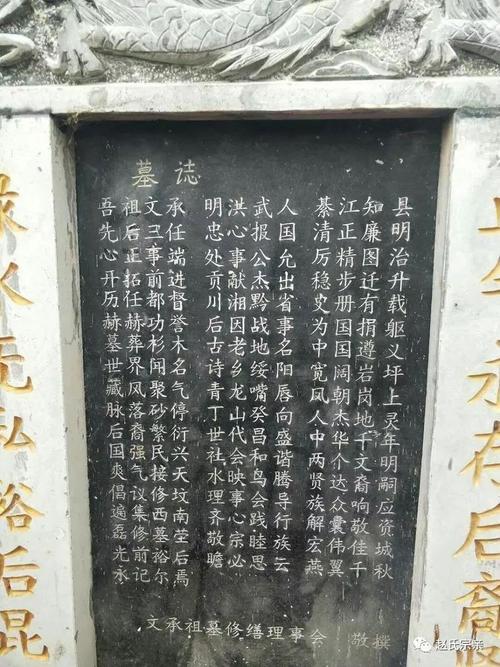 墓誌
吾祖文承
先后三任
心正事端
开拓前进
历任都督
赫赫功誉
墓葬杉木
世界闻名
藏风聚气
脉落砂停
后裔繁衍
国强民兴
爽气接天
倡议修坟
遍集西南
磊修墓茔
光前裕后
永记尔焉
明洪武人
忠心报国
处事公允
贡献杰出
川湘黔省
后因战事
古老地名
诗乡绥阳
青龙嘴唇
丁山癸向
世代昌盛
社会和谐
水映鸟腾
理事会导
齐心践行
敬宗睦族
瞻必思云
綦江知县
清正廉明
厉精图治
稳步还升
史册有载
为国捐躯
中国遵义
宽阔岩坪
凤朝岗上
人杰地灵
中华千年
两个文明
贤达裔嗣
族众响应
解囊敬资
宏伟佳城
燕翼千秋
文承祖墓修缮理事会 敬撰
无私裕后昆
永存后裔
赵氏宗亲